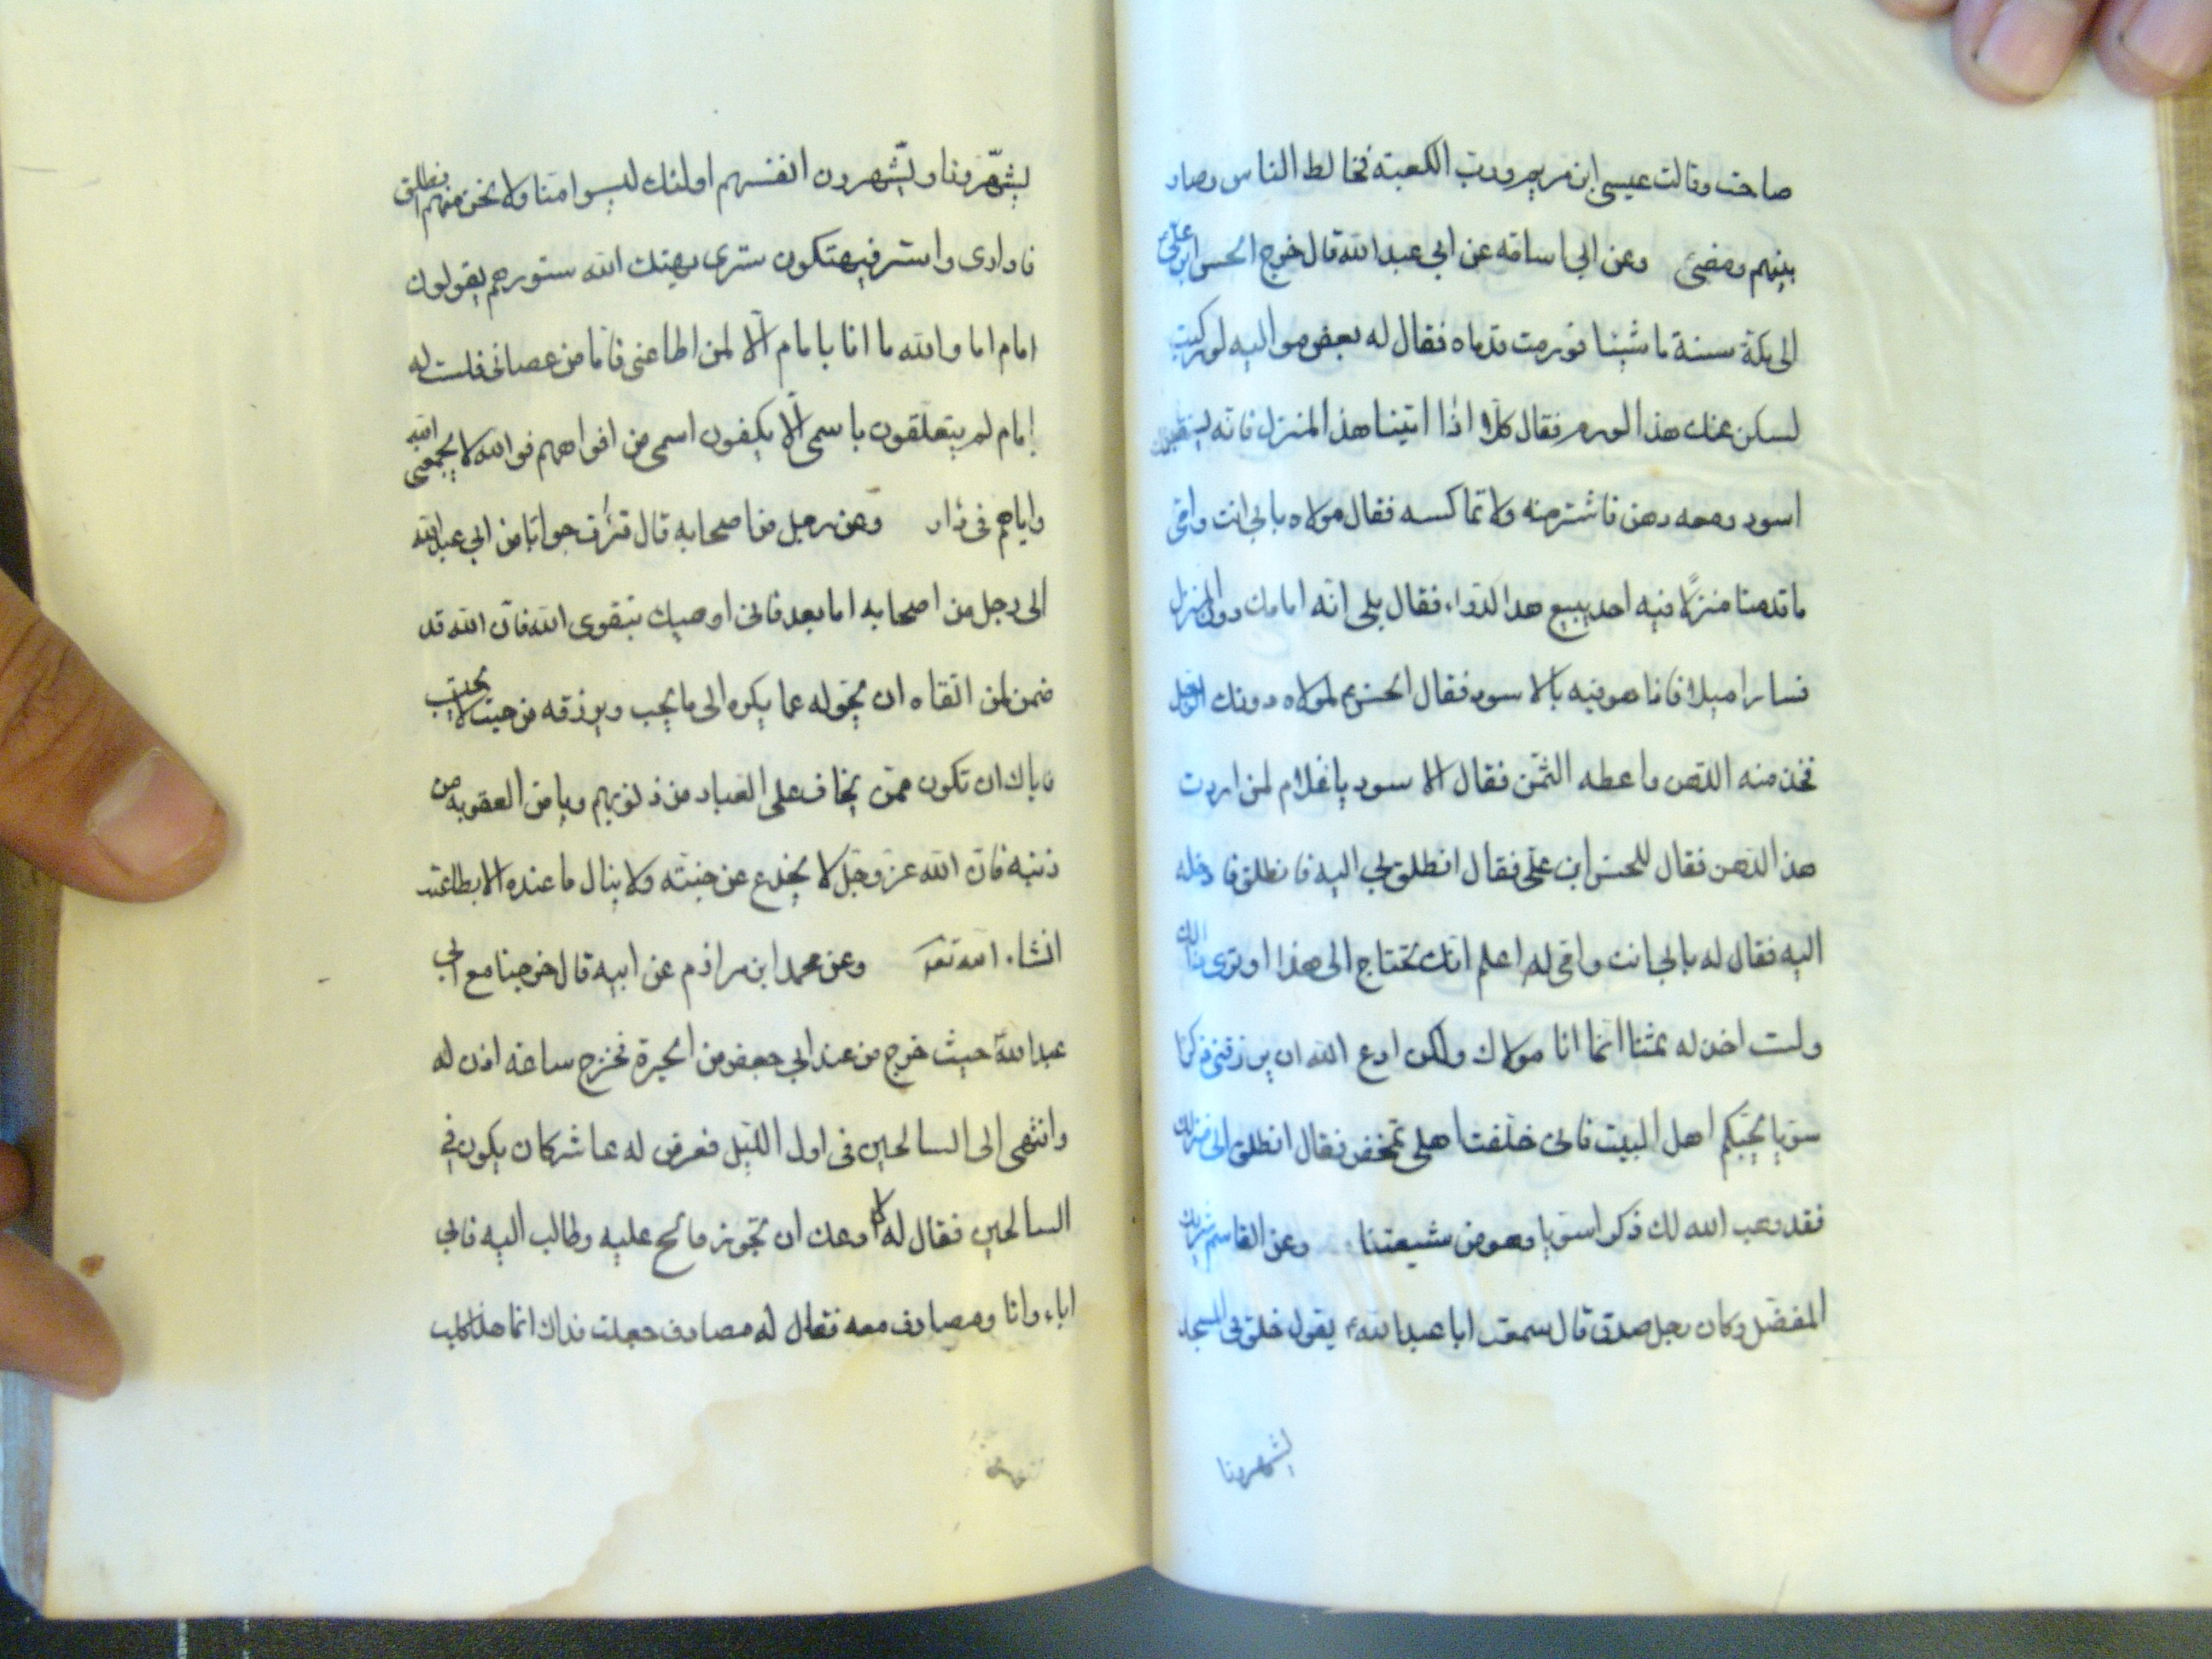 صاحت وقالت عيسى ابن مريم ورب الكعبة فخالط الناس وصار
بينهم ومضى وعن ابي اسامه عن ابي عبد الله قال خرج الحسن ابن علي ع
الى مكة سنة ماشيا فورمت قدماه فقال له بعض مواليه لو ركبت
لسكن عنك هذا الورم فقال كلا اذا اتينا هذا المنزل فانه
اسود ومعه دهن فاشتر منه ولا تماكسه فقال مولاه بابي انت وامي
ما قدمنا منزلا فيه احد يبيع هذا الدواء فقال بلى انه امامك دون المنزل
فسارا ميلا فاذا هو فيه بالاسود فقال الحسن ع لمولاه دونك الرجل
فخذ منه الدهن واعطه الثمن فقال الاسود يا غلام لمن اردت
هذا الدهن فقال للحسن ابن علي فقال انطلق بي اليه فانطلق فادخله
اليه فقال له بابي انت وامي لم اعلم انك تحتاج الى هذا او ترى ذالك
ولست اخذ له ثمنا انما انا مولاك ولكن ادع الله ان يرزقني ذكرا
سويا يحبكم اهل البيت فاني خلفت اهلي تمخض فقال انطلق الى منزلك
فقد وهب الله لك ذكرا سويا وهو من شيعتنا وعن القاسم شريك
المفضل وكان رجل صدق قال سمعت ابا عبد الله ع يقول خلق في المسجد
يشهرونا
يشهّرونا ويشّهرون انفسهم اولئك ليسوا منا ولا نحن منهم انطلق
فاوارى واستر فيهتكون سترى يهتك الله ستورهم يقولون
امام اما والله ما انا بامام الا لمن اطاعني فاما من عصاني فلست له
امام لم يتعلقون باسمي الا يكفون اسمي من افواههم فو الله لا يجمعني الله
واياهم في دار وعن رجل من اصحابه قال قرأت جوابا من ابي عبد الله
الى رجل من اصحابه اما بعد فاني اوصيك بتقوى الله فان الله قد
ضمن لمن اتقاه ان يحوله عما يكره الى ما يحب ويرزقه من حيث لا يحتسب
فاياك ان تكون ممن يخاف على العباد من ذنوبهم ويامن العقوبه من
ذنبه فان الله عز وجل لا يخدع عن جنته ولا ينال ما عنده الا بطاعته
انشاء الله تعه وعن محمد ابن مرازم عن ابيه قال خرجنا مع ابي
عبد الله ع حيث خرج من عند ابي جعفر من الحيرة فخرج ساعه اذن له
وانتهى الى السالحين في اول الليل فعرض له عاشر كان يكون في
السالحين فقال له لا ادعك ان تجوز فالح عليه وطالب اليه فابى
اباء وانا ومصادف معه فقال له مصادف جعلت فداك انما هذا كلب